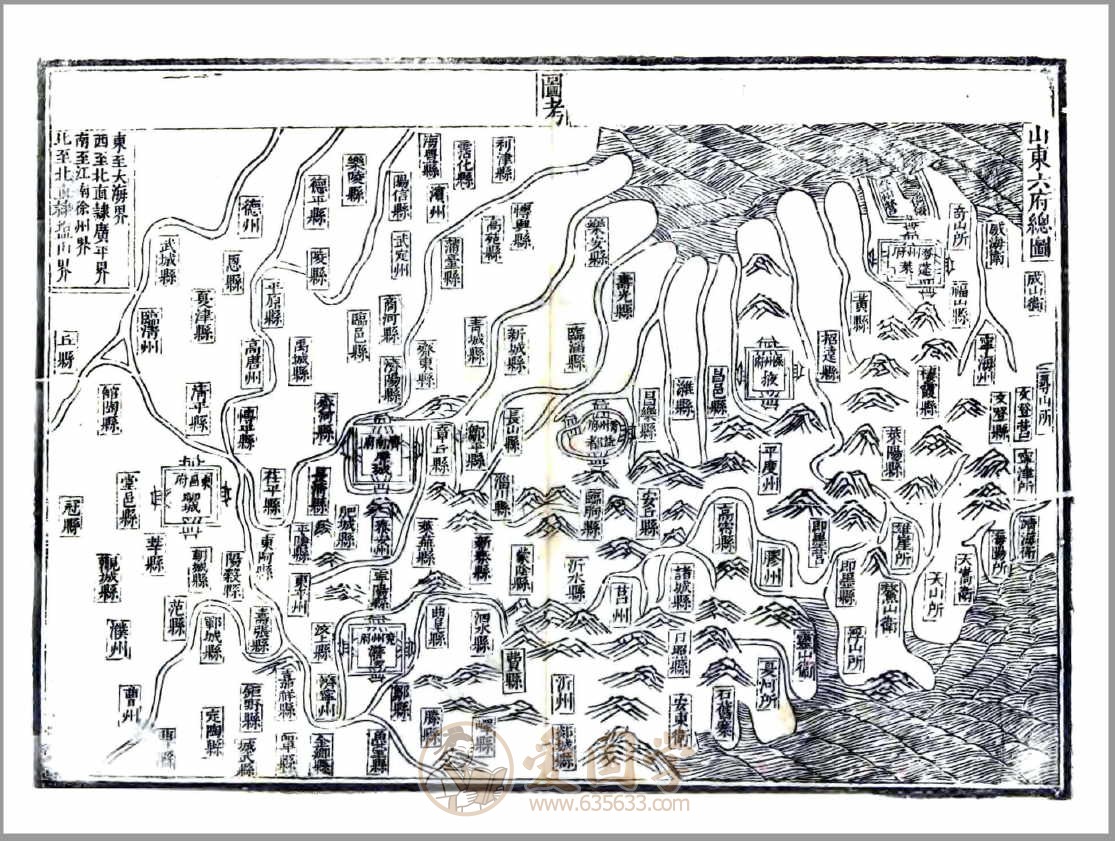 圖考
山東六府總圖
東至大海界
西至北直隸廣平界
南至江南徐州界
北至北直隸鹽山界
利津縣
霑化縣
海豐縣
樂陵縣
陽信縣
濱州
德平縣
德州
博興縣
高苑縣
樂安縣
奇山所
威海衛
武城縣
恩縣
陵縣
武定州
蒲臺縣
壽光縣
成山衛
夏津縣
平原縣
商河縣
福山縣
黃縣
臨清州
臨邑縣
青城縣
新城縣
臨淄縣
招遠縣
寧海州
丘縣
高唐州
禹城縣
濟陽縣
齊東縣
棲霞縣
館陶縣
清平縣
博平縣
長山縣
昌樂縣
濰縣
昌邑縣
文登縣
文登營
濟南府
章丘縣
萊陽縣
平度州
寧津所
冠縣
堂邑縣
茌平縣
淄川縣
臨朐縣
安丘縣
高密縣
肥城縣
泰安州
萊蕪縣
即墨營
雄崖所
靖海衛
海陽所
東阿縣
平陰縣
觀城縣
莘縣
朝城縣
陽穀縣
東平州
寧陽縣
新泰縣
蒙陰縣
沂水縣
莒州
諸城縣
膠州
即墨縣
鰲山衛
大山所
大嵩衛
范縣
濮州
鄆城縣
壽張縣
汶上縣
兗州府
曲阜縣
泗水縣
費縣
日照縣
靈山衛
浮山所
曹州
鉅野縣
嘉祥縣
濟寧州
鄒縣
沂州
夏河所
石舊寨
安東衛
定陶縣
城武縣
單縣
金鄉縣
魚臺縣
滕縣
嶧縣
郯城縣
愛國學
www.635633.com